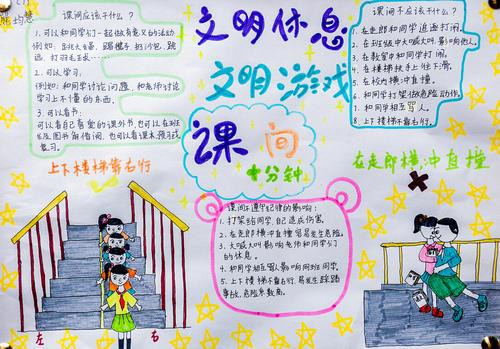 课间应该干什么？
1. 可以和同学们一起做有意义的活动
例如：跳大绳、踢毽子、扔沙包、跳
远、打羽毛球……
2. 可以学习。
例如：和同学讨论问题，和老师讨论
学习上不懂的东西。
3. 可以看书：
可以看自己喜爱的课外书，也可以在班
复习。
上下楼梯靠右行
左
右
文明休息
文明游戏
课间
十分钟
课间不遵守纪律的影响：
1. 打架给同学、自己造成伤害。
2. 在走廊横冲直撞容易发生危险。
3. 大喊大叫影响老师和同学们
的休息。
4. 和同学相互骂人影响同班同学。
5. 上下楼梯不靠右行，易发生踩踏
事故，危险系数高。
课间不应该干什么？
1. 在走廊和同学追逐打闹。
2. 在班级中大喊大叫，影响他人。
3. 在教室中和同学打闹。
4. 在楼梯扶手上往下滑。
5. 在校内横冲直撞。
6. 和同学打架做危险动作。
7. 和同学相互骂人。
8. 上下楼梯不靠右。
在走廊横冲直撞